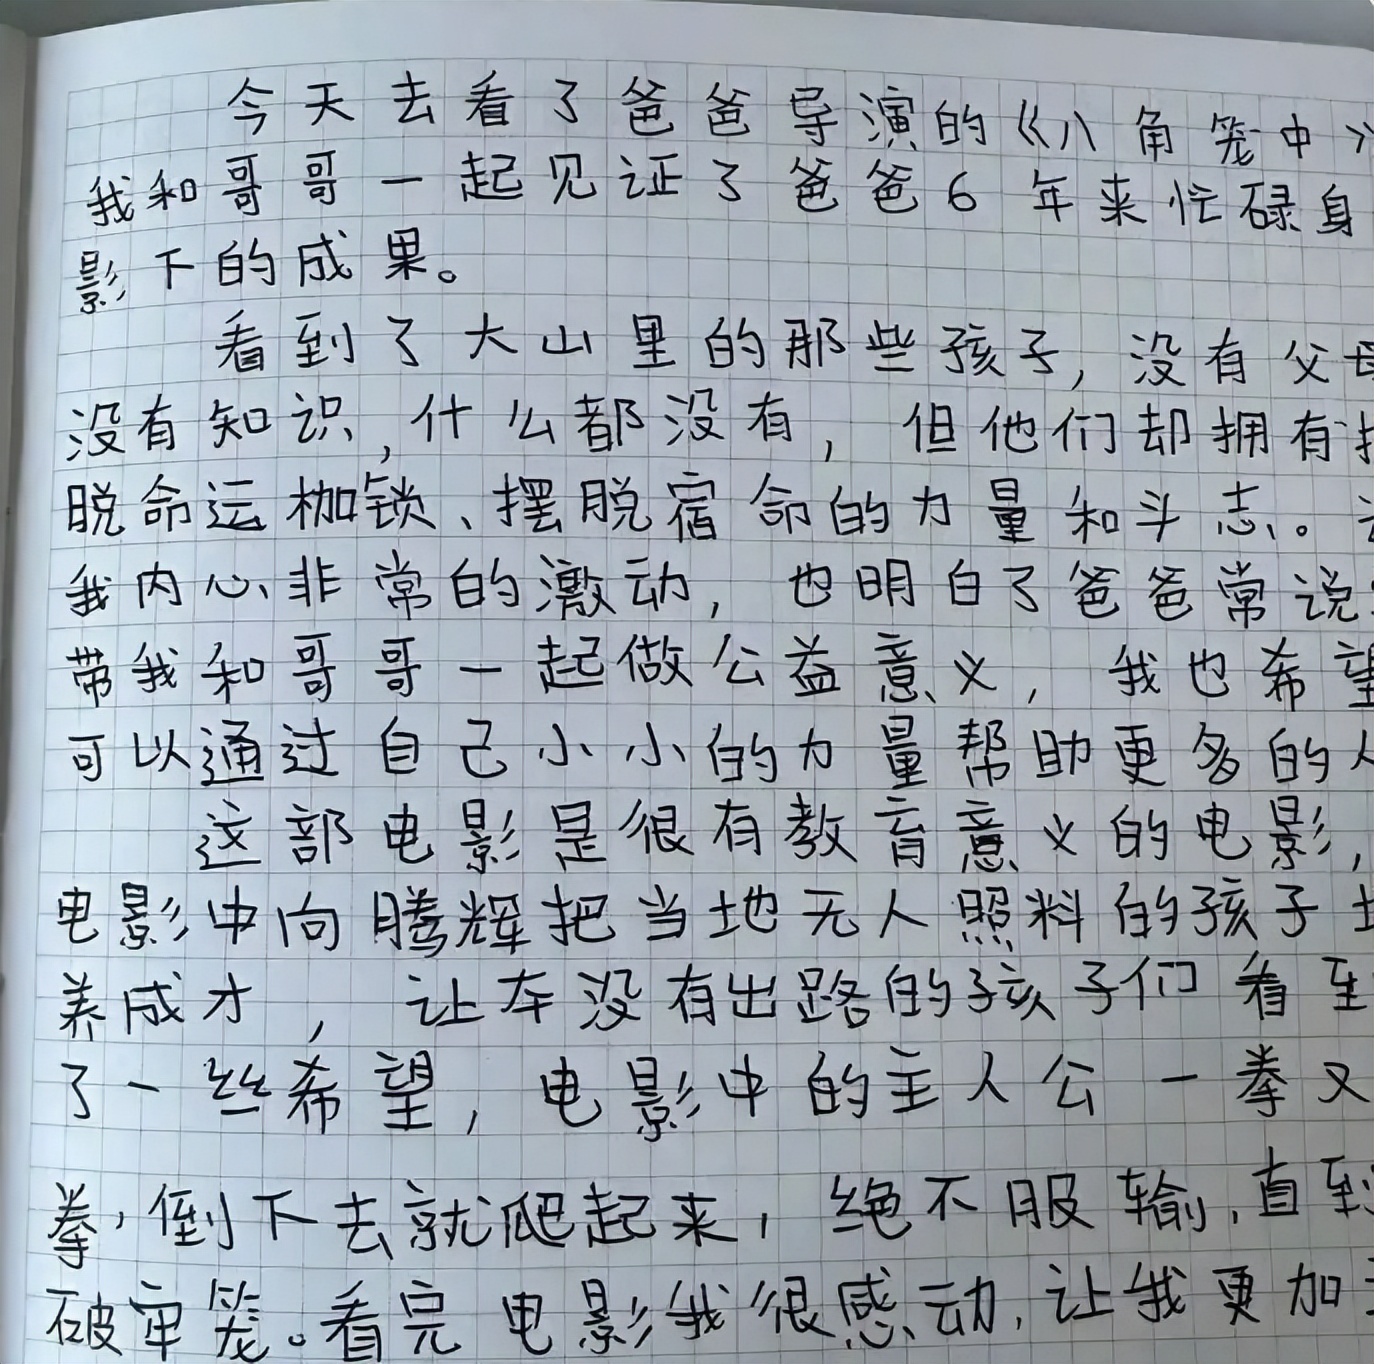 今天去看了爸爸导演的《八角笼中》
我和哥哥一起见证了爸爸6年来忙碌身
影下的成果。
看到了大山里的那些孩子,没有父母
没有知识,什么都没有,但他们却拥有
脱命运枷锁、摆脱宿命的力量和斗志。
我内心非常的激动,也明白了爸爸常说
带我和哥哥一起做公益意义,我也希望
可以通过自己小小的力量帮助更多的人
这部电影是很有教育意义的电影,
电影中向腾辉把当地无人照料的孩子
养成才,让本没有出路的孩子们看到
了一丝希望,电影中的主人公一拳又
拳,倒下去就爬起来,绝不服输,直到
破牢笼。看完电影我很感动,让我更加